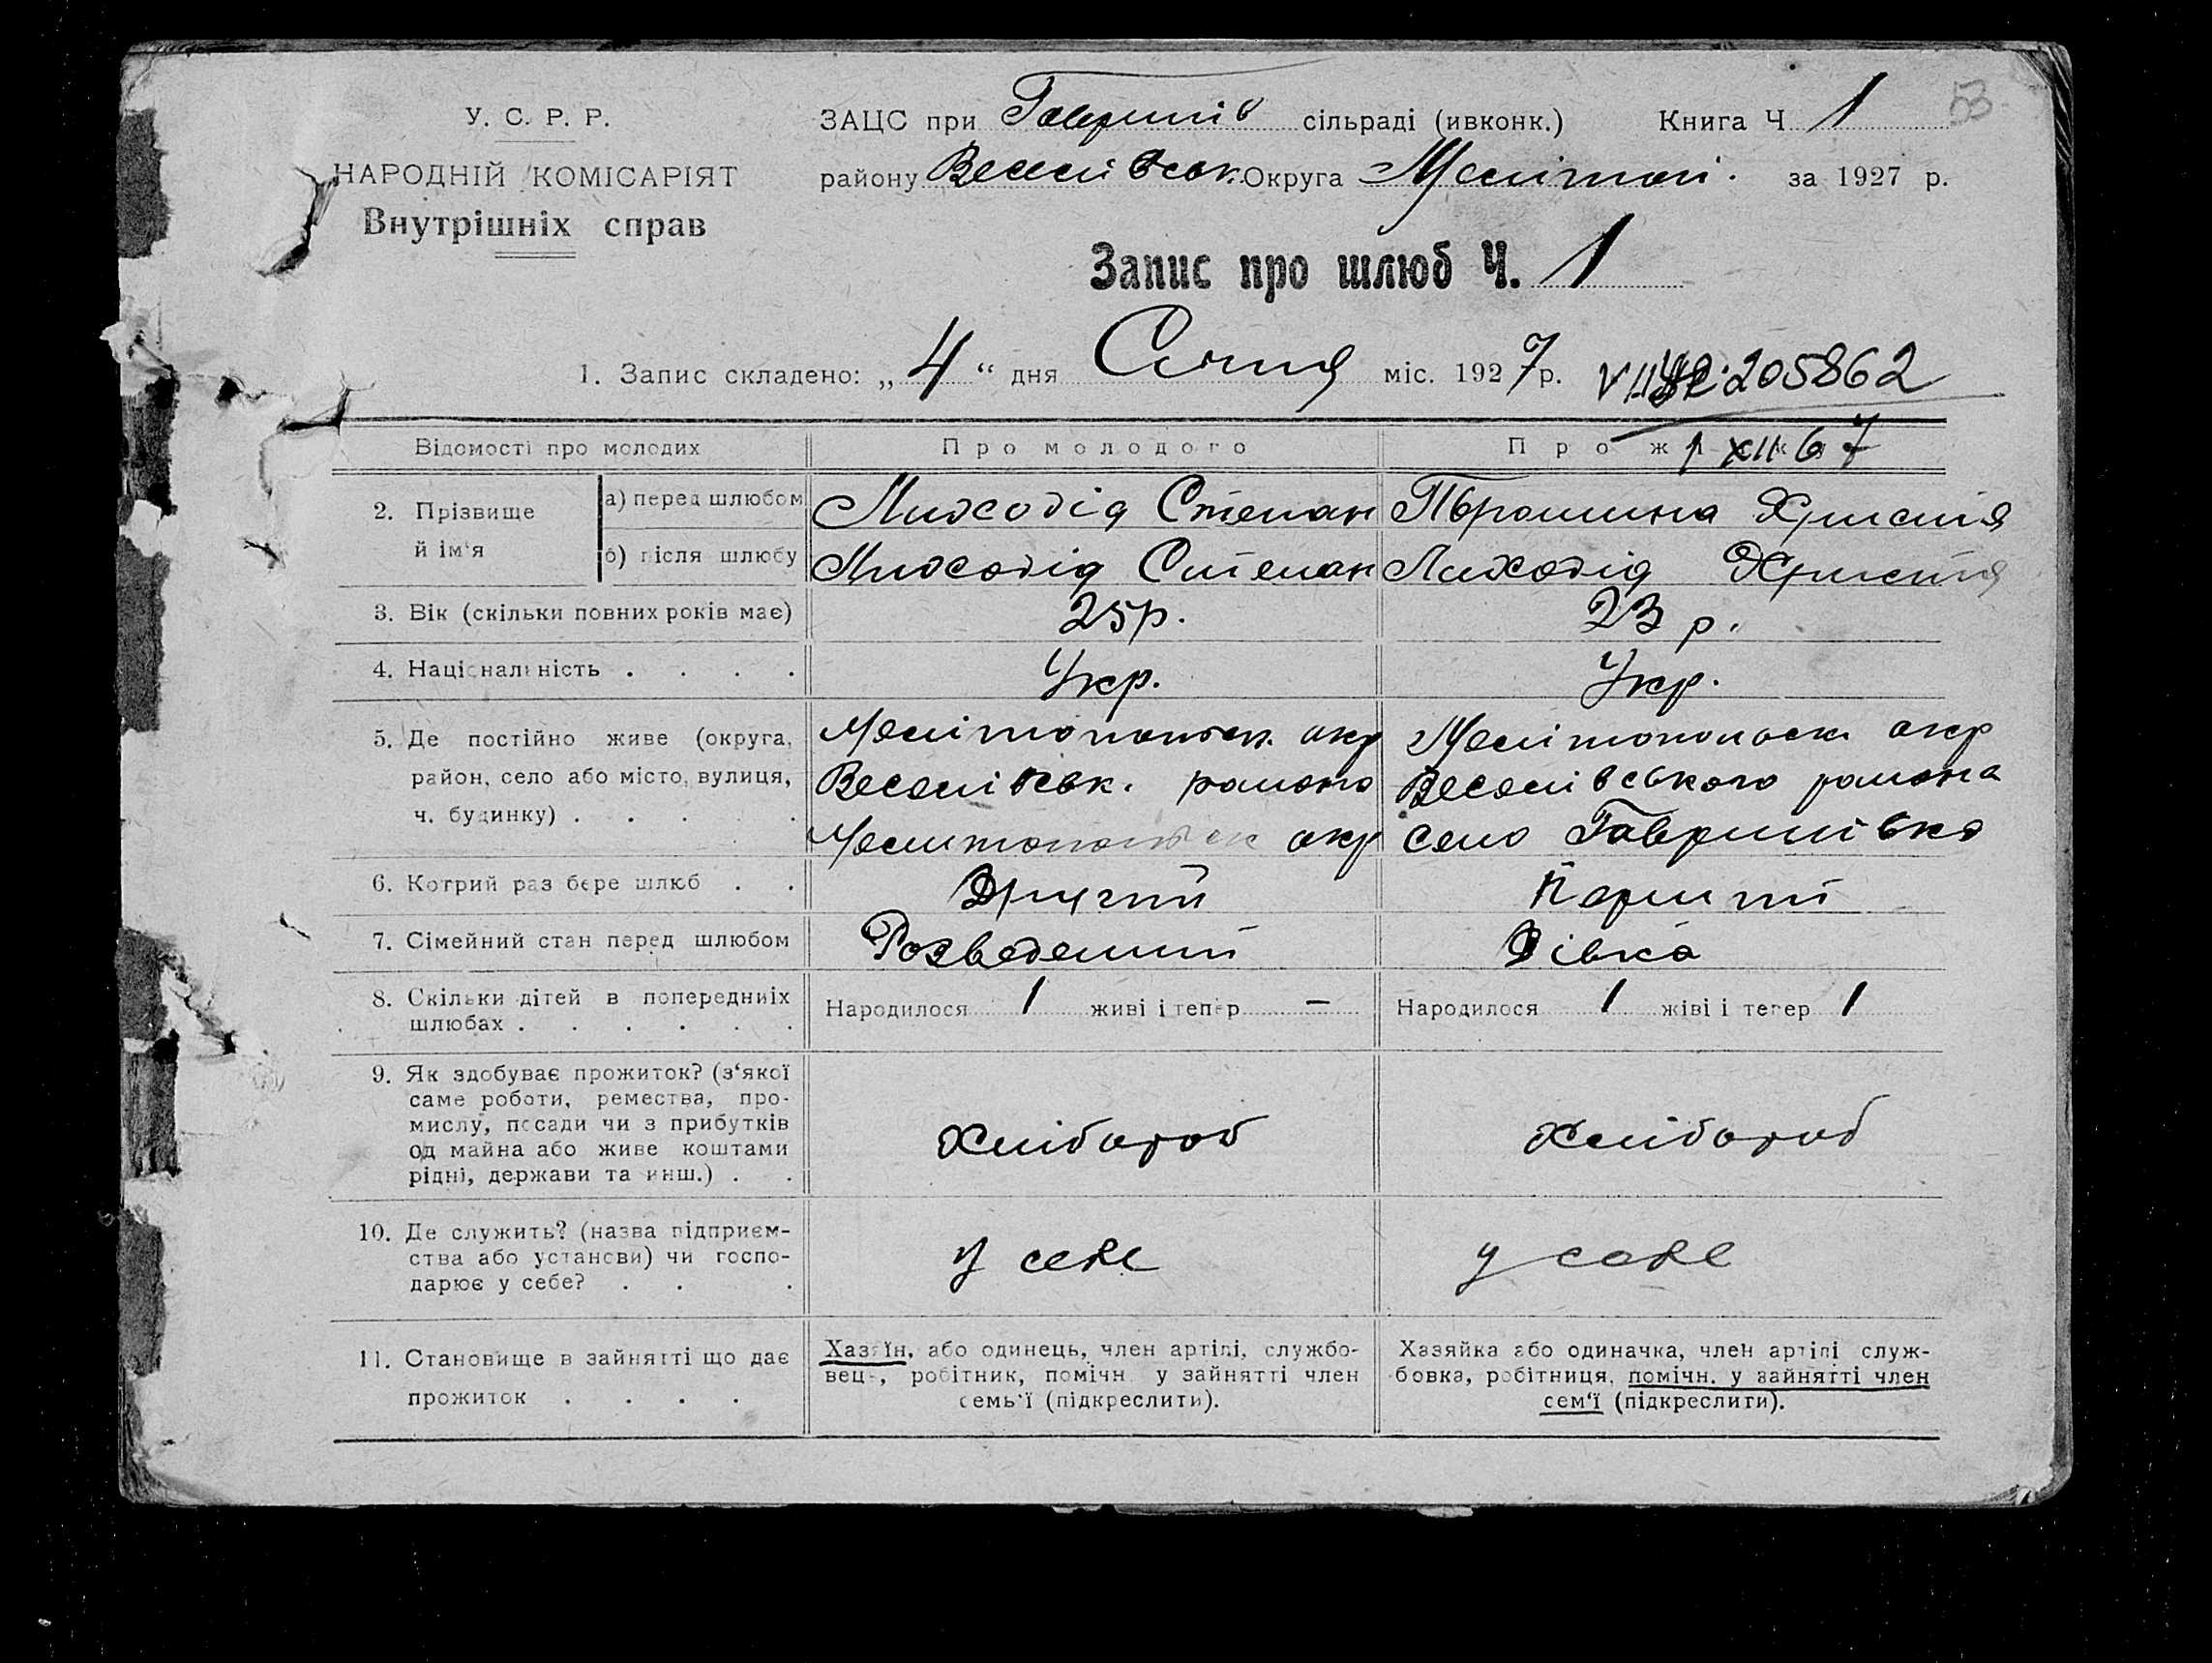 53
У. С. Р. Р.
НАРОДНІЙ КОМІСАРІЯТ
Внутрішніх справ
ЗАЦС при Гаврилів сільраді (ивконк.) Книга Ч 1
району Веселівськ. Округа Мелітоп. за 1927 р.
Запис про шлюб Ч. 1
1. Запис складено: „4“ дня Січня міс. 1927 р. 205862
1 XII 67
Відомості про молодих Про молодого Про
2. Прізвище й ім‘я
а) перед шлюбом Лиходід Степан Христія
б) після шлюбу Лиходід Степан Лиходід Христія
3. Вік (скільки повних років має) 25 р. 23 р.
4. Національність . . . . Укр. Укр.
5. Де постійно живе (округа,
район, село або місто, вулиця,
ч. будинку) . . . . .
Мелітопольськ. окр
Веселівськ. района
Мелитопольськ окр
Мелітопольськ окр
Веселівського района
село Гаврилівка
6. Котрий раз бере шлюб . . Другий Перший
7. Сімейний стан перед шлюбом Розведений Дівка
8. Скільки дітей в попередніх
шлюбах . . . . . .
Народилося 1 живі і тепер —
Народилося 1 жіві і тепер 1
9. Як здобуває прожиток? (з‘якої
саме роботи, ремества, про-
мислу, посади чи з прибутків
од майна або живе коштами
рідні, держави та инш.) . .
Хлібороб
Хлібороб
10. Де служить? (назва підприєм-
ства або установи) чи госпо-
дарює у себе? . . .
у себе
у себе
11. Становище в зайнятті що дає
прожиток . . . .
Хазяїн, або одинець, член артілі, службо-
вець, робітник, помічн. у зайнятті член
семь‘ї (підкреслити).
Хазяйка або одиначка, член артілі служ-
бовка, робітниця, помічн. у зайнятті член
сем‘ї (підкреслити).